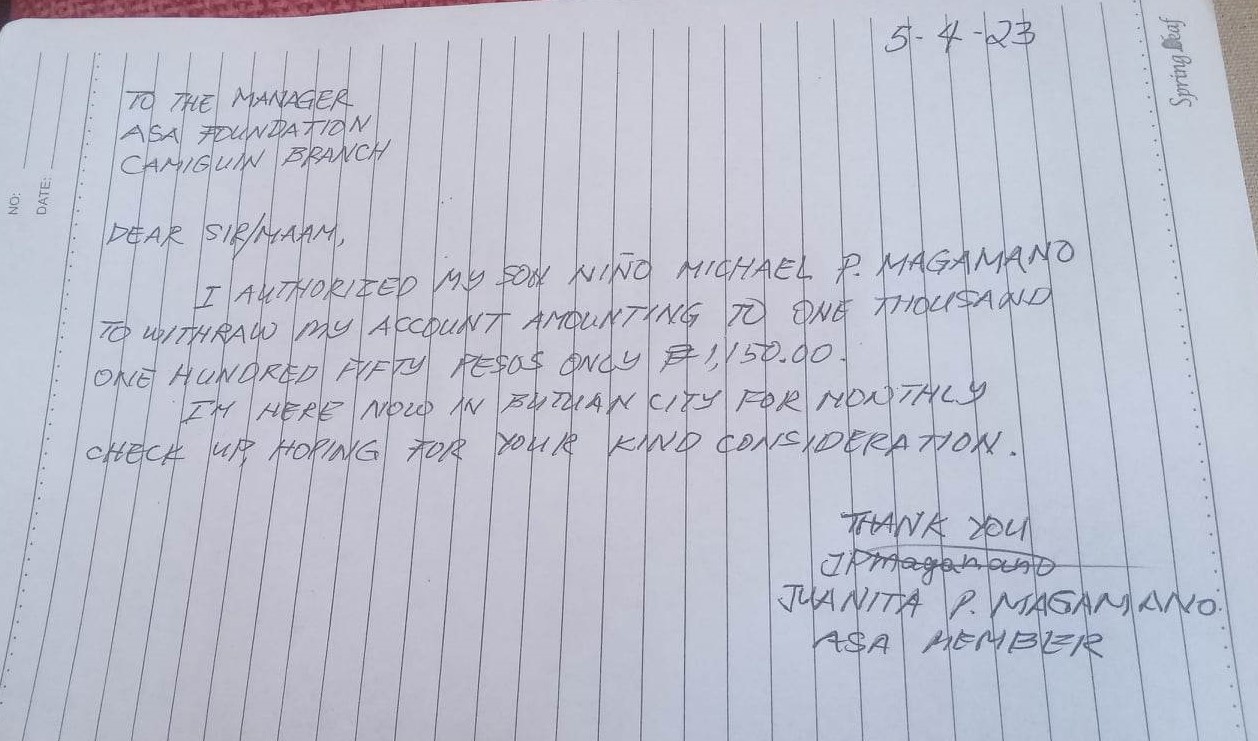 5-4-23
Spring Leaf
NO:
DATE:
TO THE MANAGER
ASA FOUNDATION
CAMIGUIN BRANCH
DEAR SIR/MAAM,
I AUTHORIZED MY SON NIÑO MICHAEL P. MAGAMANO
TO WITHRAW MY ACCOUNT AMOUNTING TO ONE THOUSAND
ONE HUNDRED FIFTY PESOS ONLY ₱1,150.00.
I'M HERE NOW IN BUTUAN CITY FOR MONTHLY
CHECK UP, HOPING FOR YOUR KIND CONSIDERATION.
THANK YOU
JPMagamano
JUANITA P. MAGAMANO.
ASA MEMBER